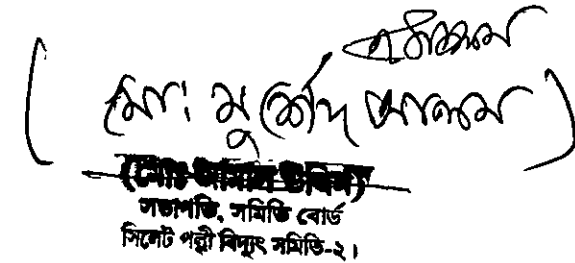 (মো: মুর্শেদ আলম)
সভাপতি, সমিতি বোর্ড
সিলেট পল্লী বিদ্যুৎ সমিতি-২।